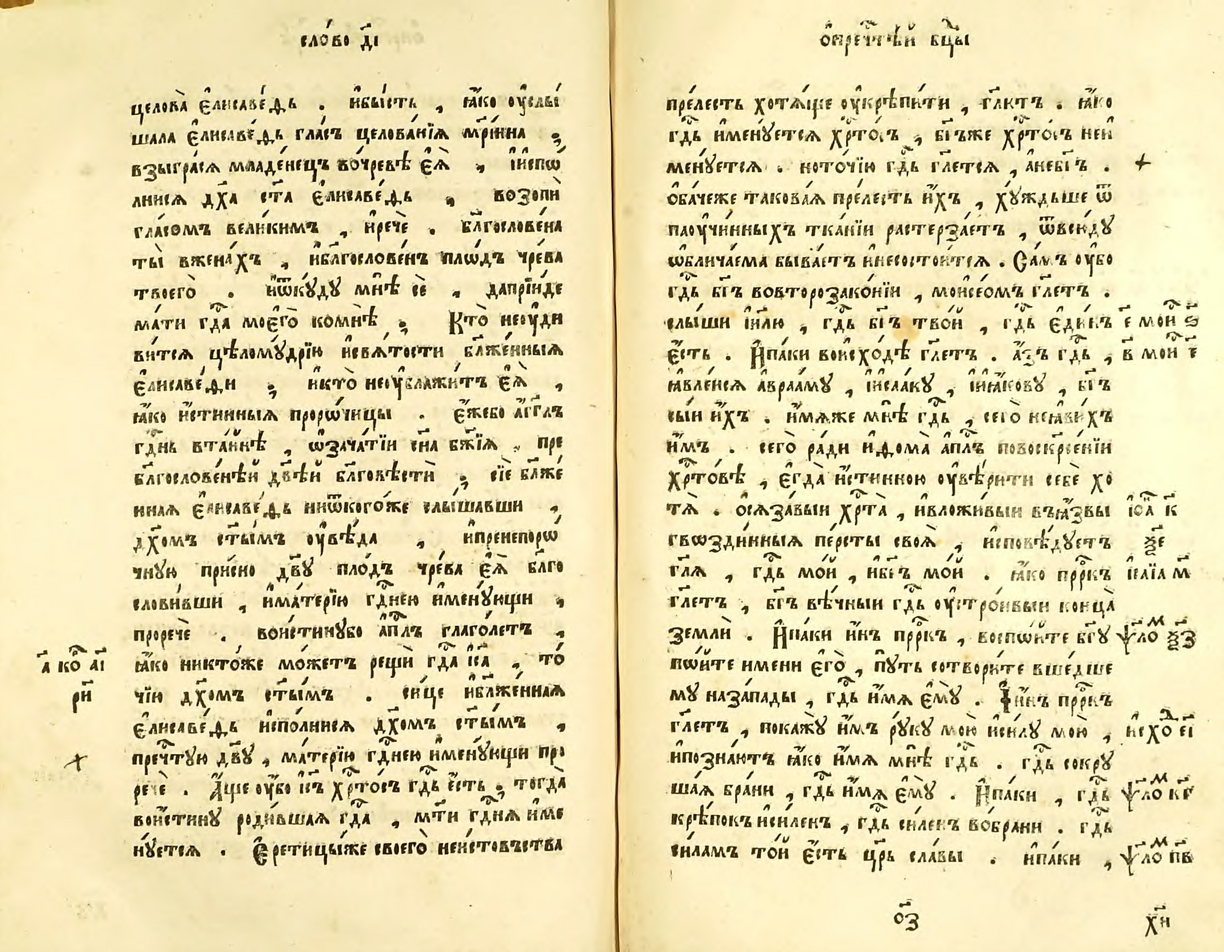 сло́во д҃і
целова̀ є҆лисаве́ѳь . и҆бы́сть , ꙗ҆́ко ᲂу҆слы́
шала є҆лисаве́ѳь гла́съ целова́нїѧ мр҃і́ина ,
взыгра́сѧ младе́нецъ во́чревѣ є҆ѧ̀ , и҆и҆спо́
лнисѧ дх҃а ст҃а є҆лисаве́ѳь , возопѝ
гла́сомъ вели́кимъ , и҆речѐ . блг҃ослове́на
ты̀ вжена́хъ , и҆блг҃ослове́нъ пло́дъ чре́ва
твоегѡ̀ . и҆ѿкꙋ́дꙋ мнѣ̀ сѐ , да́прїи́де
ма́ти гд҃а моегѡ̀ комнѣ̀ ; Кто̀ неᲂуди
ви́тсѧ цѣломꙋ́дрїю и҆свѧ́тости бл҃же́нныѧ
є҆лисаве́ѳи ; и҆кто̀ неᲂублажи́тъ є҆ѧ̀ ,
ꙗ҆́ко и҆́стинныѧ проро́чицы . є҆́жебо а҆́гг҃лъ
гд҃нь вта́йнѣ , ѡ҆зача́тїи сн҃а бж҃їѧ , пре
блг҃ослове́нѣй дв҃ѣй блг҃овѣстѝ , сїѐ бл҃же́
ннаѧ є҆лисаве́ѳь ниѿкого́же слы́шавши ,
дх҃омъ ст҃ымъ ᲂу҆вѣ́да , и҆пренепоро́
чнꙋю при́сно дв҃ꙋ пло́дъ чре́ва є҆ѧ̀ блг҃о
слови́вши , и҆ма́терїю гд҃нею и҆менꙋ́ющи ,
проречѐ . вои́стинꙋбо а҆п҃лъ глаго́летъ ,
ꙗ҆́ко никто́же мо́жетъ рещѝ гд҃а і҆и҃са , то́
чїю дх҃омъ ст҃ымъ . си́це и҆бл҃же́ннаѧ
є҆лисаве́ѳь и҆спо́лнисѧ дх҃омъ ст҃ымъ ,
пречⷭ҇тꙋю дв҃ꙋ , ма́терїю гд҃нею и҆менꙋ́ющи про
речѐ . А҆́ще ᲂу҆́бо і҆и҃съ хрⷭ҇то́съ гд҃ь є҆́сть , тогда̀
вои́стинꙋ роди́вшаѧ гд҃а , мт҃и гд҃нѧ и҆ме
нꙋ́етсѧ . Є҆ретицы́же своегѡ̀ неи́стовъства
а҃ ко а҃і
р҃и
ѡ҆пречⷭ҇тѣй бц҃ы
пре́лесть хотѧ́ще ᲂу҆крѣпи́ти , гл҃ютъ . ꙗ҆́ко
гд҃ь и҆менꙋ́етсѧ хрⷭ҇то́съ , бг҃ъже хрⷭ҇то́съ неи
менꙋ́етсѧ . но́точїю гд҃ь гл҃етсѧ , а҆небг҃ъ .
ѻ҆ба́чеже такова́ѧ пре́лесть и҆́хъ , хꙋ́ждьше ѿ
паᲂу́чинныхъ тка́нїи растерза́етъ , ѿвсю́дꙋ
ѡ҆блича́ема быва́етъ и҆несостои́тсѧ . Са́мъ ᲂу҆́бо
гд҃ь бг҃ъ вовторозако́нїи , мои҆сеомъ гл҃етъ .
слы́ши і҆и҃лю , гд҃ь бг҃ъ тво́й , гд҃ь є҆ди́нъ
є҆́сть . И҆па́ки воисхо́дѣ гл҃етъ . а҆́зъ гд҃ь ,
ꙗ҆влейсѧ а҆враа́мꙋ , і҆и҆саа́кꙋ , і҆и҆ꙗ́ковꙋ , бг҃ъ
сы́и и҆́хъ . и҆́мѧже мнѣ̀ гд҃ь , сегѡ̀ неꙗ҆ви́хъ
и҆̀мъ . сегѡ̀ ра́ди и҆ѳома̀ а҆п҃лъ повоскресе́нїи
хрⷭ҇то́вѣ , є҆гда̀ и҆́стинною ᲂу҆вѣ́рити себѐ хо
тѧ̀ . ѡ҆сѧза́выи хрⷭ҇та̀ , и҆вложи́выи въꙗ҆́звы
гвозди́нныѧ пе́рсты своѧ̀ , и҆сповѣ́дꙋетъ
гл҃ѧ , гд҃ь мо́й , и҆бг҃ъ мо́й . ꙗ҆́ко прⷪ҇ркъ
гл҃етъ , бг҃ъ вѣ́чныи гд҃ь ᲂу҆стро́ивыи конца̀
землѝ . И҆па́ки и҆́нъ прⷪ҇ркъ , воспо́ите бг҃ꙋ
по́ите и҆́мени є҆гѡ̀ , пꙋ́ть сотвори́те вше́дше
мꙋ наза́пады , гд҃ь и҆́мѧ є҆мꙋ̀ . И҆и҆́нъ прⷪ҇ркъ
гл҃етъ , покажꙋ̀ и҆́мъ рꙋ́кꙋ мою̀ и҆си́лꙋ мою̀ ,
и҆позна́ютъ ꙗ҆́ко и҆́мѧ мнѣ̀ гд҃ь . гд҃ь сокрꙋ
ша́ѧ бра́ни , гд҃ь и҆́мѧ є҆мꙋ̀ . И҆па́ки , гд҃ь
крѣ́покъ и҆си́ленъ , гд҃ь си́ленъ вобра́ни . гд҃ь
си́ламъ то́й є҆́сть цр҃ь сла́вы . и҆па́ки ,
є҃ мои ѕ҃
в҃ мои г҃
і҆ѡа к҃
ѯ҃є
і҆са́їа м҃
ѱало ѯ҃з
и҆схо є҃і
ѱало к҃г
ѱало п҃в
о҃з
х҃и